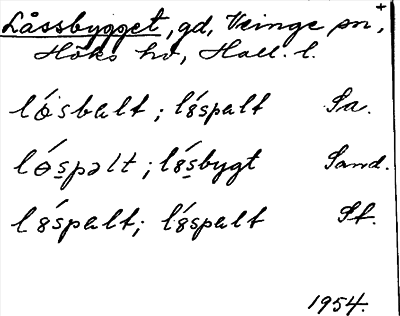 Låssbygget, gd, Veinge sn, +
Höks hd, Hall. l.
lósbalt; lǿspalt Sa.
lóspəlt; lǿsbygt Sand.
l8́spalt; l8́spalt St.
1954.